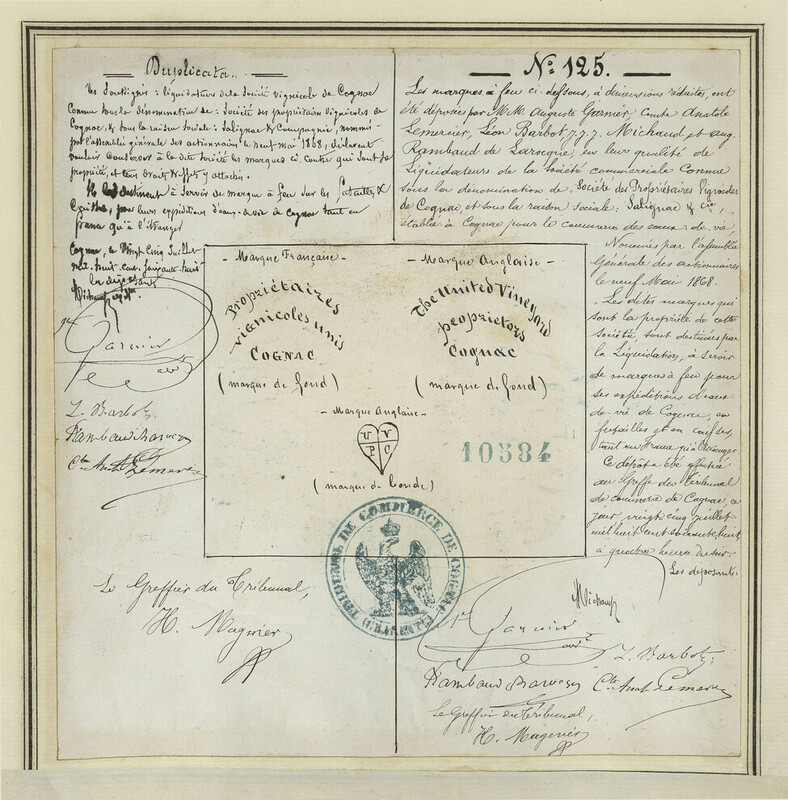 Duplicata..
Les Soussignés : liquidateurs de la Société vignicole de Cognac
Connue sous la dénomination de : Société des propriétaires vignicoles de
Cognac, & sous la raison sociale : Salignac & Compagnie, nommés
par l'assemblée générale des actionnaires le neuf mai 1868, déclarent
vouloir conserver à la dite société les marques ci. contre qui sont sa
propriété, et tous droits & effets y attachés.
destinent à servir de marque à feu sur les futailles &
Caisses, pour leurs expéditions d'eaux-de-vie de Cognac tant en
france qu'à l'étranger
Cognac, le Vingt Cinq Juillet
mil-huit-cent-soixante-huit
les déposants
Michaud
Garnier
L. Barbot
Rambaud Larocque
Cte Anat Lemercier
N° 125.
Les marques à feu ci-dessous, à dimensions réduites, ont
été déposées par M.M. Auguste Garnier Comte Anatole
Lemercier, Léon Barbot, J.J.J. Michaud et Aug.
Rambaud de Larocque, en leur qualité de
Liquidateurs de la Société commerciale connue
sous la dénomination de Société des Propriétaires Vignicoles
de Cognac, et sous la raison sociale : Salignac & Cie,
établie à Cognac pour le commerce des eaux-de-vie,
Nommés par l'assemblée
Générale des actionnaires
le neuf Mai 1868.
Les dites marques qui
sont la propriété de cette
Société, sont destinées par
la Liquidation, à servir
de marques à feu pour
ses expéditions d'eaux
de-vie de Cognac, en
futailles et en caisses,
tant en France qu'à l'étranger.
Ce dépôt a été effectué
au Greffe du Tribunal
de commerce de Cognac, ce
jour, vingt cinq juillet
mil huit cent soixante huit,
à quatre heures du soir.
Les déposants.
- Marque Française -
Propriétaires
vignicoles unis
COGNAC
(marque de fond)
- Marque Anglaise -
The United Vineyard
proprietors
Cognac
(marque de fond)
- Marque Anglaise -
U V
P C
(marque de bonde)
10584
TRIBUNAL DE COMMERCE DE COGNAC
(CHARENTE)
Le Greffier du Tribunal,
H. Magnier
Michaud
Garnier
L. Barbot
Rambaud Larocque
Cte Anat Lemercier
Le Greffier du Tribunal,
H. Magnier